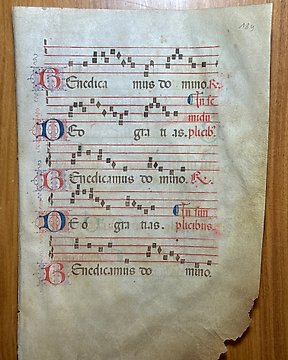 189
Benedica mus do mino. R.
In se
midu
Deo gra ti as. plicib
Benedicamus do mino. R.
In sim
Deo gra tias. plicibus
Benedicamus do mino.